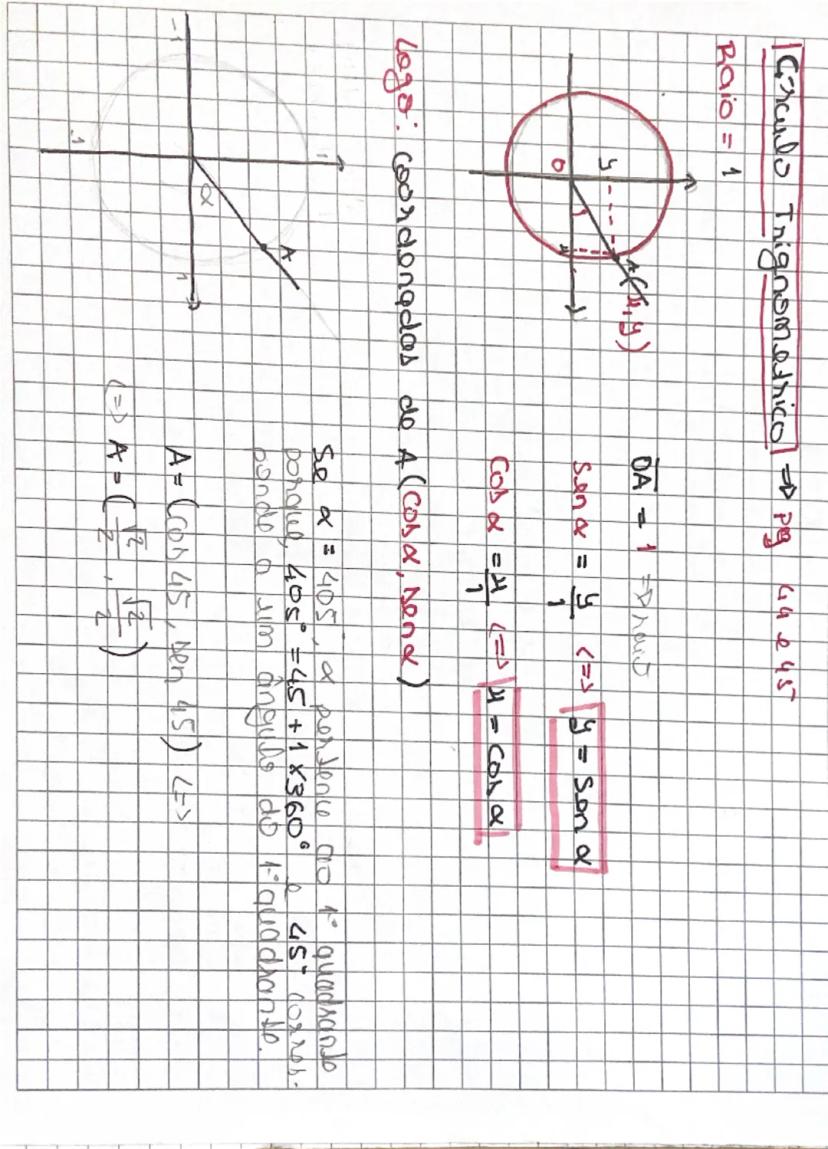 Círculo Trignometrico => pg 44 e 45
Raio = 1
y
A(x,y)
O
x
OA = 1 => raio
sen α = y/1 <=> y = sen α
cos α = x/1 <=> x = cos α
Logo: coordenadas de A (cos α, sen α)
1
A
α
-1
1
-1
Se α = 405°, α pertence ao 1º quadrante
porque, 405° = 45 + 1x360° e 45° corres-
ponde a um ângulo do 1º quadrante.
A = (cos 45, sen 45) <=>
<=> A = (√2/2, √2/2)